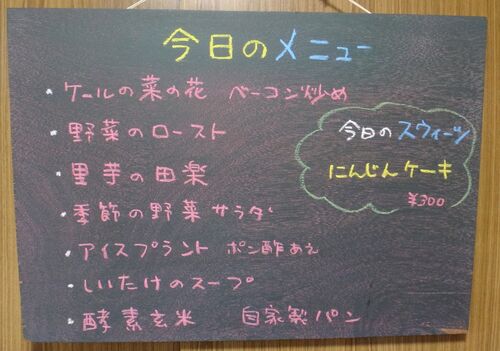 今日のメニュー
・ケールの菜の花 ベーコン炒め
・野菜のロースト
・里芋の田楽
・季節の野菜サラダ
・アイスプラント ポン酢あえ
・しいたけのスープ
・酵素玄米 自家製パン
今日のスウィーツ
にんじんケーキ
¥300